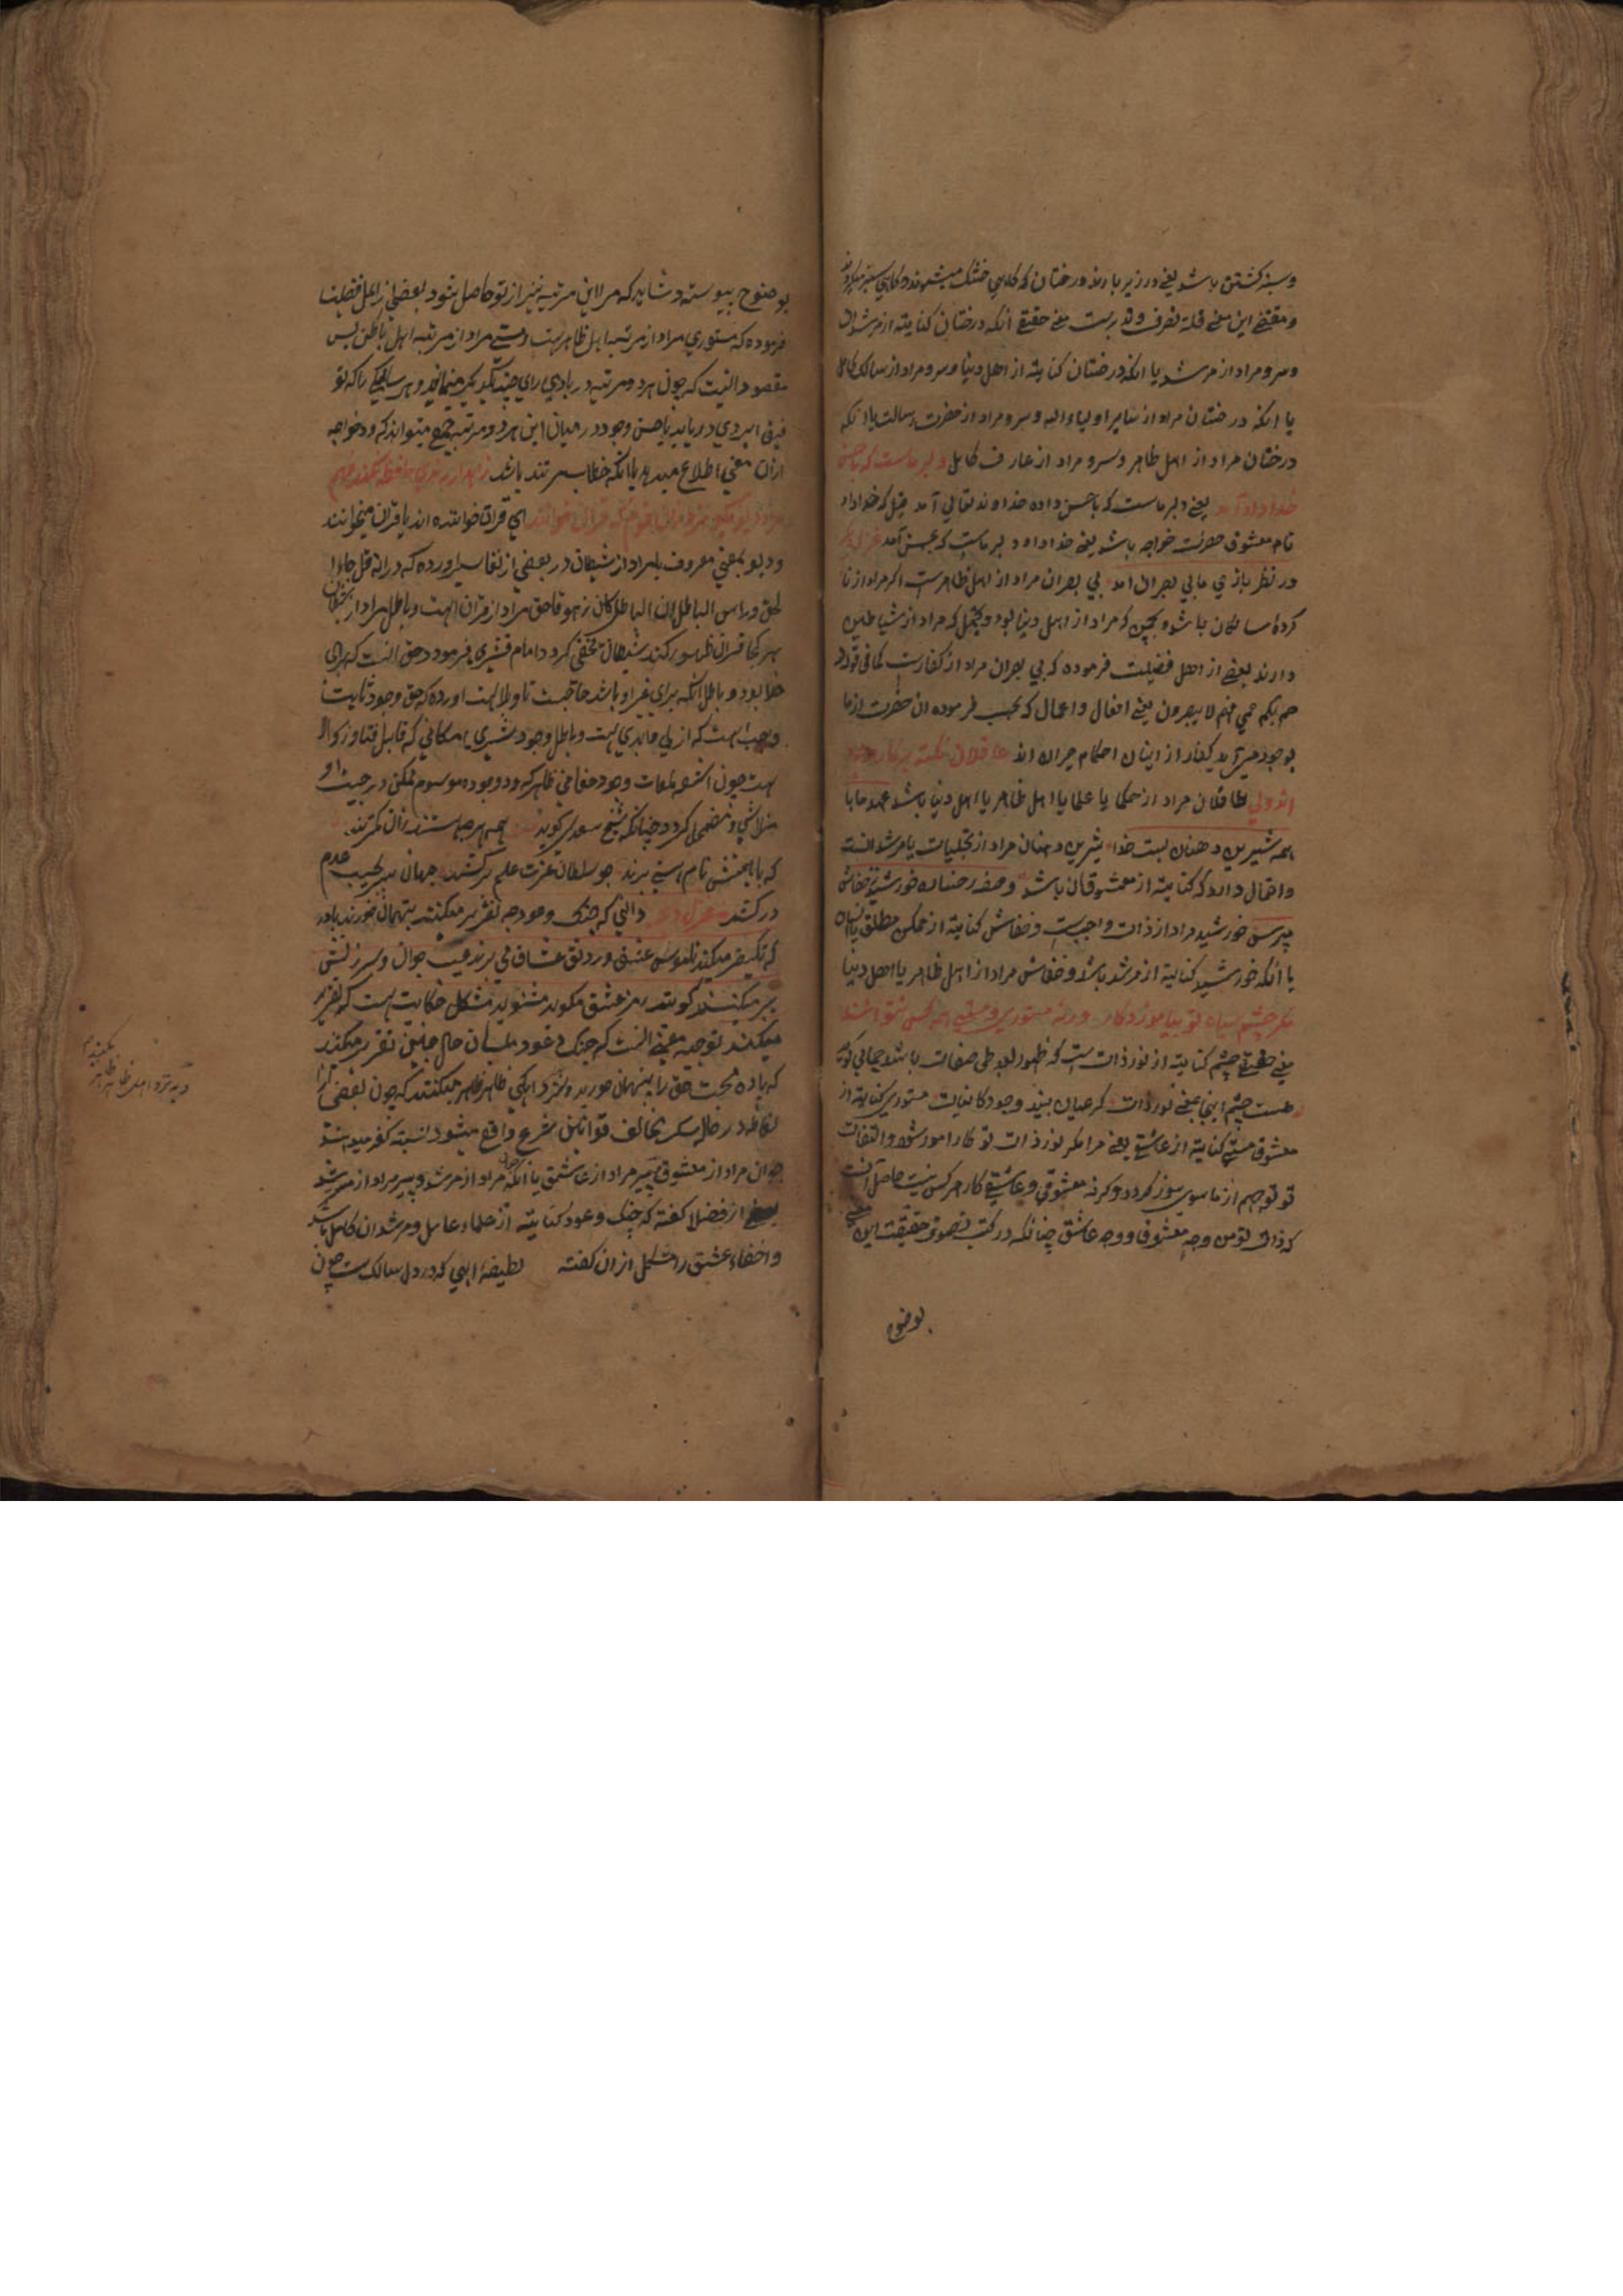 و سبز کشتن باشد یعنی در زیر بارند درختان که کاهی خشک میشوند و کاهی سبز میکردند
و مقتضی این معنی قلة تصرف وتدبرست معنی حقیقی آنکه درختان کنایة از مرشدان
و سرو مراد از مرشد یا انکه درختان کنایة از اهل دنیا و سرو مراد از سالک کامل
یا انکه درختان مراد از سایر اولیاء الله و سرو مراد از حضرت رسالت یا انکه
درختان مراد از اهل ظاهر و سرو مراد از عارف کامل دلبر ماست که باحسن
خداداد آمد یعنی دلبر ماست که باحسن داده خداوند تعالی آمد قیل که خداداد
نام معشوق حضرت خواجه باشد یعنی خداداد دلبر ماست که بحسن آمد
در نظر بازی مابی بصران امد بی بصران مراد از اهل ظاهرست اکر مراد از نا
کرده سالکان باشد و که مراد از اهل دنیا بود و یحتمل که مراد از شیاطین
دارند بعضی از اهل فضیلت فرموده که بی بصران مراد از کفارست کما فی قوله
صم بکم عمی فهم لا یبصرون یعنی افعال و اعمال که بحسب فرموده ان حضرت از ما
بوجود می آید کفار از اینان احکام حیران اند عاقلان نکته پرکار وجود
اند ولی عاقلان مراد از حکما یا علما یا اهل ظاهر یا اهل دنیا باشد عهد ما با
همه شیرین دهنان بست خدا شیرین دهنان مراد از تجلیات یا مرشدانست
و احتمال دارد که کنایة از معشوقان باشد وصف رخساره خورشید ز خفاش
مپرس خورشید مراد از ذات واجبست و خفاش کنایة از ممکن مطلق یا انسان
یا انکه خورشید کنایة از مرشد باشد و خفاش مراد از اهل ظاهر یا اهل دنیا
مکر چشم سیاه تو بیاموزد کار ورنه مستوری و مستی همه کس نتوانند
معنی حقیقی چشم کنایة از نور ذات ست که ظهور بعد طی صفات باشد
هست چشم اینجا بمعنی نور ذات کر عیان بیند وجود کاینات مستوری کنایة از
معشوق مستی کنایة از عاشق یعنی مرا مکر نور ذات تو کار اموز شود و التفات
تو توجهم از ماسوی سوز کردد وکرنه معشوقی و عاشقی کار هر کس نیست حاصل آنست
که ذات تو من وجه معشوق او وجه عاشق چنانکه در کتب تصوف حقیقت این معنی
بوضوح
بوضوح پیوسته و شاید که مرا این مرتبه نیز از تو حاصل شود بعضی از اهل فضیلت
فرموده که مستوری مراد از مرتبه اهل ظاهرست و مستی مراد از مرتبه اهل باطن پس
مقصود انست که چون هر دو مرتبه در بادی رای ضد یکدیکر مینمایند و هر سالکی را که تو
فیق ایزدی دریابد یا حسن وجود در میان این هر دو مرتبه جمع میتواند کرد خواجه
ازان معنی اطلاع میدهد یا انکه خطاب بمرشد باشد زاهد ار رندی حافظ نکند فهم
چه شد دیو بکریزد ازان قوم که قران خوانند ای قران خوانده اند یا قران میخوانند
و دیو بمعنی معروف یا مراد از شیطان در بعضی از تفاسیر اورده که در ایه قل جاء ا
لحق وزهق الباطل ان الباطل کان زهوقا حق مراد از قران است و باطل مراد از شیطان
هر کجا قران ظهور کند شیطان مختفی کردد امام قشیری فرموده حق انست که برای
خدا بود و باطل انکه برای غیر او باشد صاحب تاویلات اورده که حق وجود ثابت
واجب است که ازلی و ابدی ست و باطل وجود بشری امکانی که قابل فنا و زوال
ست چون اشعه لمعات وجود حقانی ظاهر کردد وجود موسوم ممکن در جنب او
متلاشی و مضمحل کردد چنانکه شیخ سعدی کوید همه هر چه هستند ازان کمترند
که با هستیش نام هستی برند چو سلطان عزت علم برکشد جهان سر بجیب عدم
درکشد دانی که چنک و عود چه تقریر میکنند پنهان خورید باده
که تکفیر میکنند ناموس عشق و رونق عشاق می برند عیب جوان و سرزنش
پیر میکنند کویند رمز عشق مکوید مشنوید مشکل حکایت ست که تقریر
میکنند توجیه معنی انست که چنک و عود بلسان حال چنین تقریر میکنند
که باده محبت حق را پنهان خورید و ظاهر میکنند که چون بعضی از
الفاظ در حال سکر مخالف قوانین شرع واقع میشود نسبة کفر میدهند
جوان مراد از معشوق پیر مراد از عاشق یا انکه جوان مراد از مرشد و پیر مراد از مرشد
بعضی از فضلا کفته که چنک و عود کنایة از علماء عامل و مرشدان کامل باشد
و اخفاء عشق را مشکل ازان کفته لطیفهٔ الهی که در دل سالک ست چون